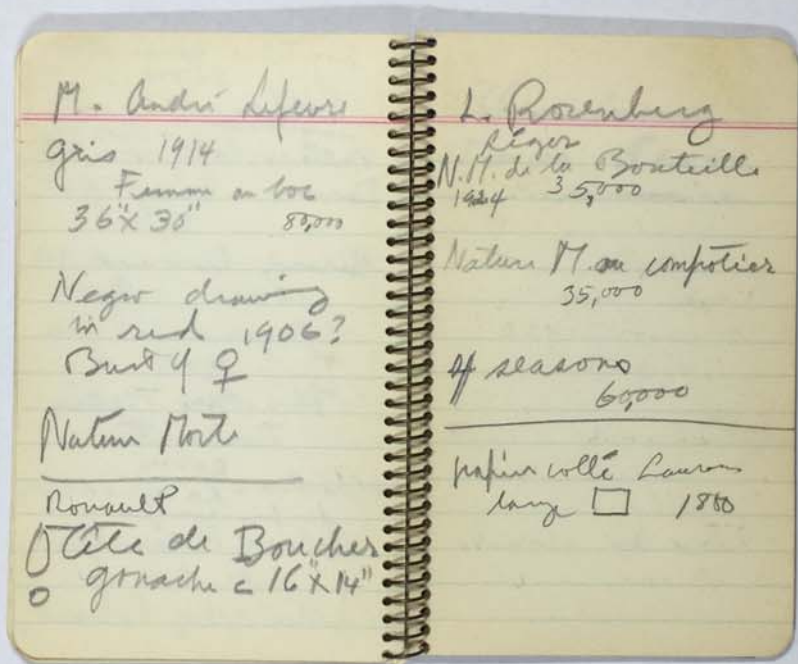 M. André Lefevre
Gris 1914
Femme au boc
36"X 30" 80,000
Negro drawing
in red 1906?
Bust of ♀
Nature Morte
Rouault
Tête de Boucher
gouache c 16"X 14"
L. Rosenberg
Léger
N.M. de la Bouteille
1924 35,000
Nature M. au compotier
35,000
4 seasons
60,000
papier collé Laurens
large 1800